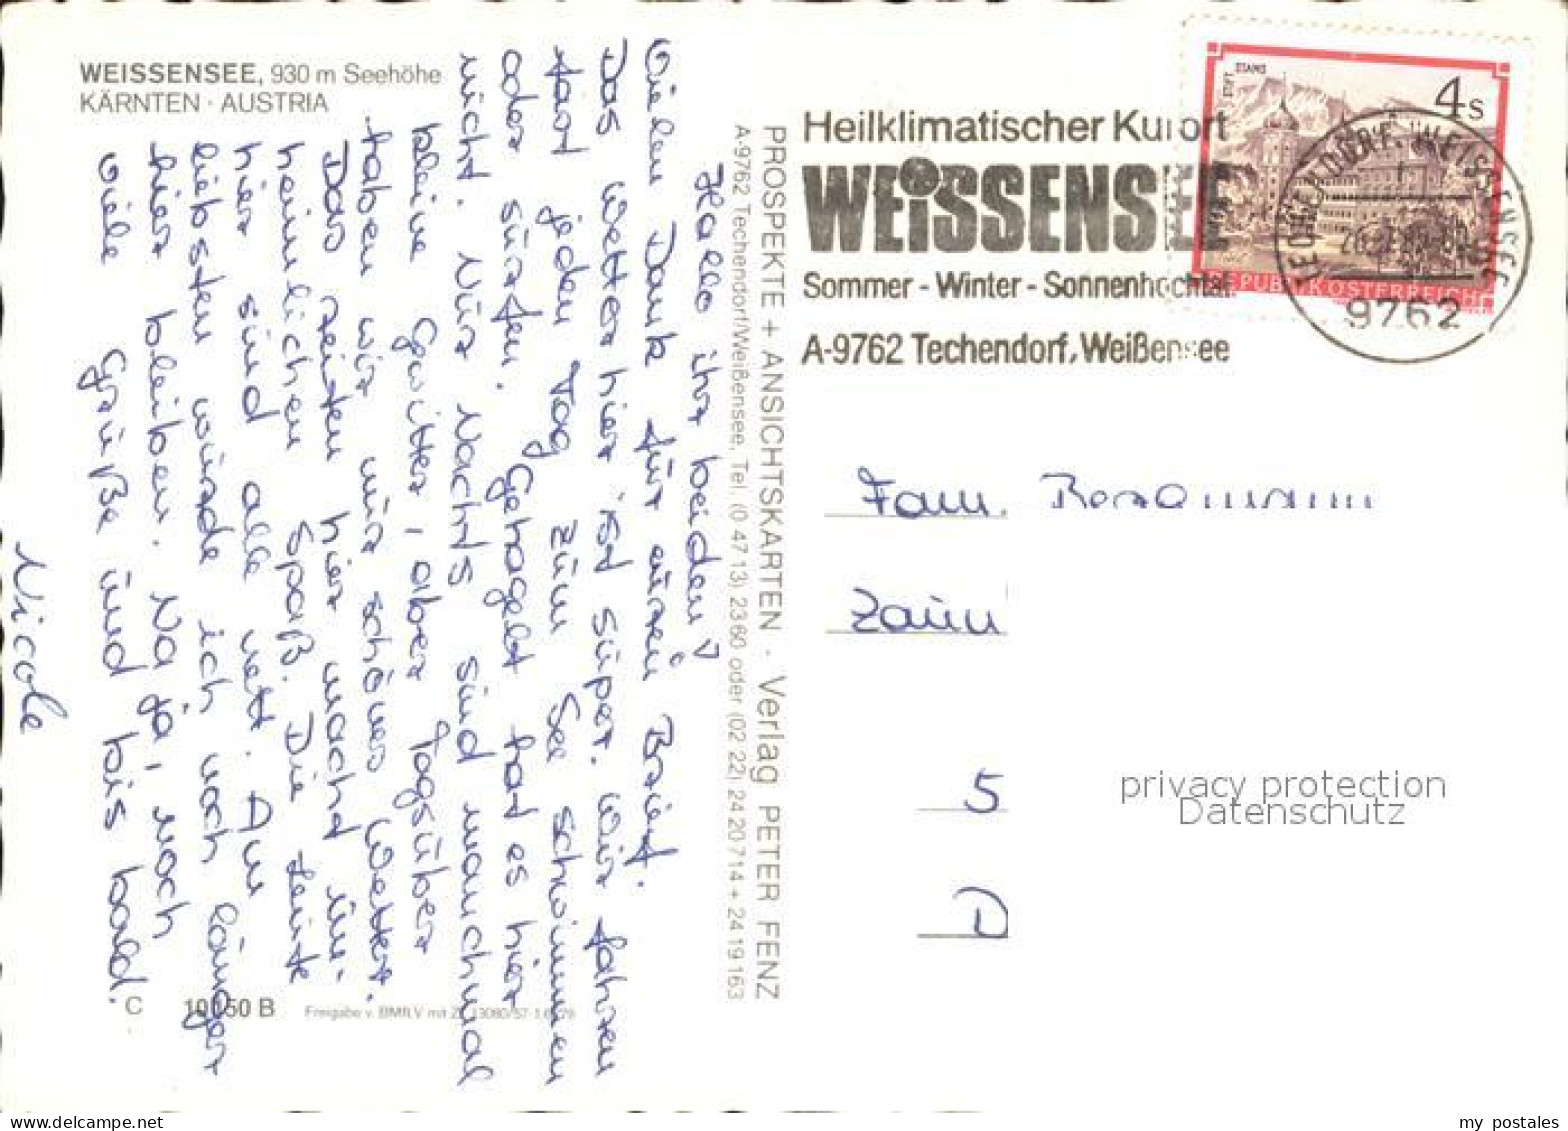 WEISSENSEE, 930 m Seehöhe
KÄRNTEN · AUSTRIA
Hallo ihr beiden!
Vielen Dank für euren Brief.
Das Wetter hier ist super. Wir fahren
fast jeden Tag zum See schwimmen
oder surfen. Gehagelt hat es hier
nicht. Nur Nachts sind manchmal
kleine Gewitter, aber Tagsüber
haben wir nur schönes Wetter.
Das Reiten hier macht un-
heimlichen Spaß. Die Leute
hier sind alle nett. Am
liebsten würde ich noch länger
hier bleiben. Na ja, noch
viele Grüße und bis bald.
Nicole
C 10150 B
Freigabe v. BMfLV mit
PROSPEKTE + ANSICHTSKARTEN · Verlag PETER FENZ
A-9762 Techendorf/Weißensee, Tel. (0 47 13) 23 60 oder (02 22) 24 20 714 + 24 19 163
Heilklimatischer Kurort
WEISSENSEE
Sommer - Winter - Sonnenhochtal
A-9762 Techendorf, Weißensee
STIFT STAMS
4 S
REPUBLIK ÖSTERREICH
TECHENDORF, WEISSENSEE
9762
Fam.
Zaun
5
D
privacy protection
Datenschutz
my postales